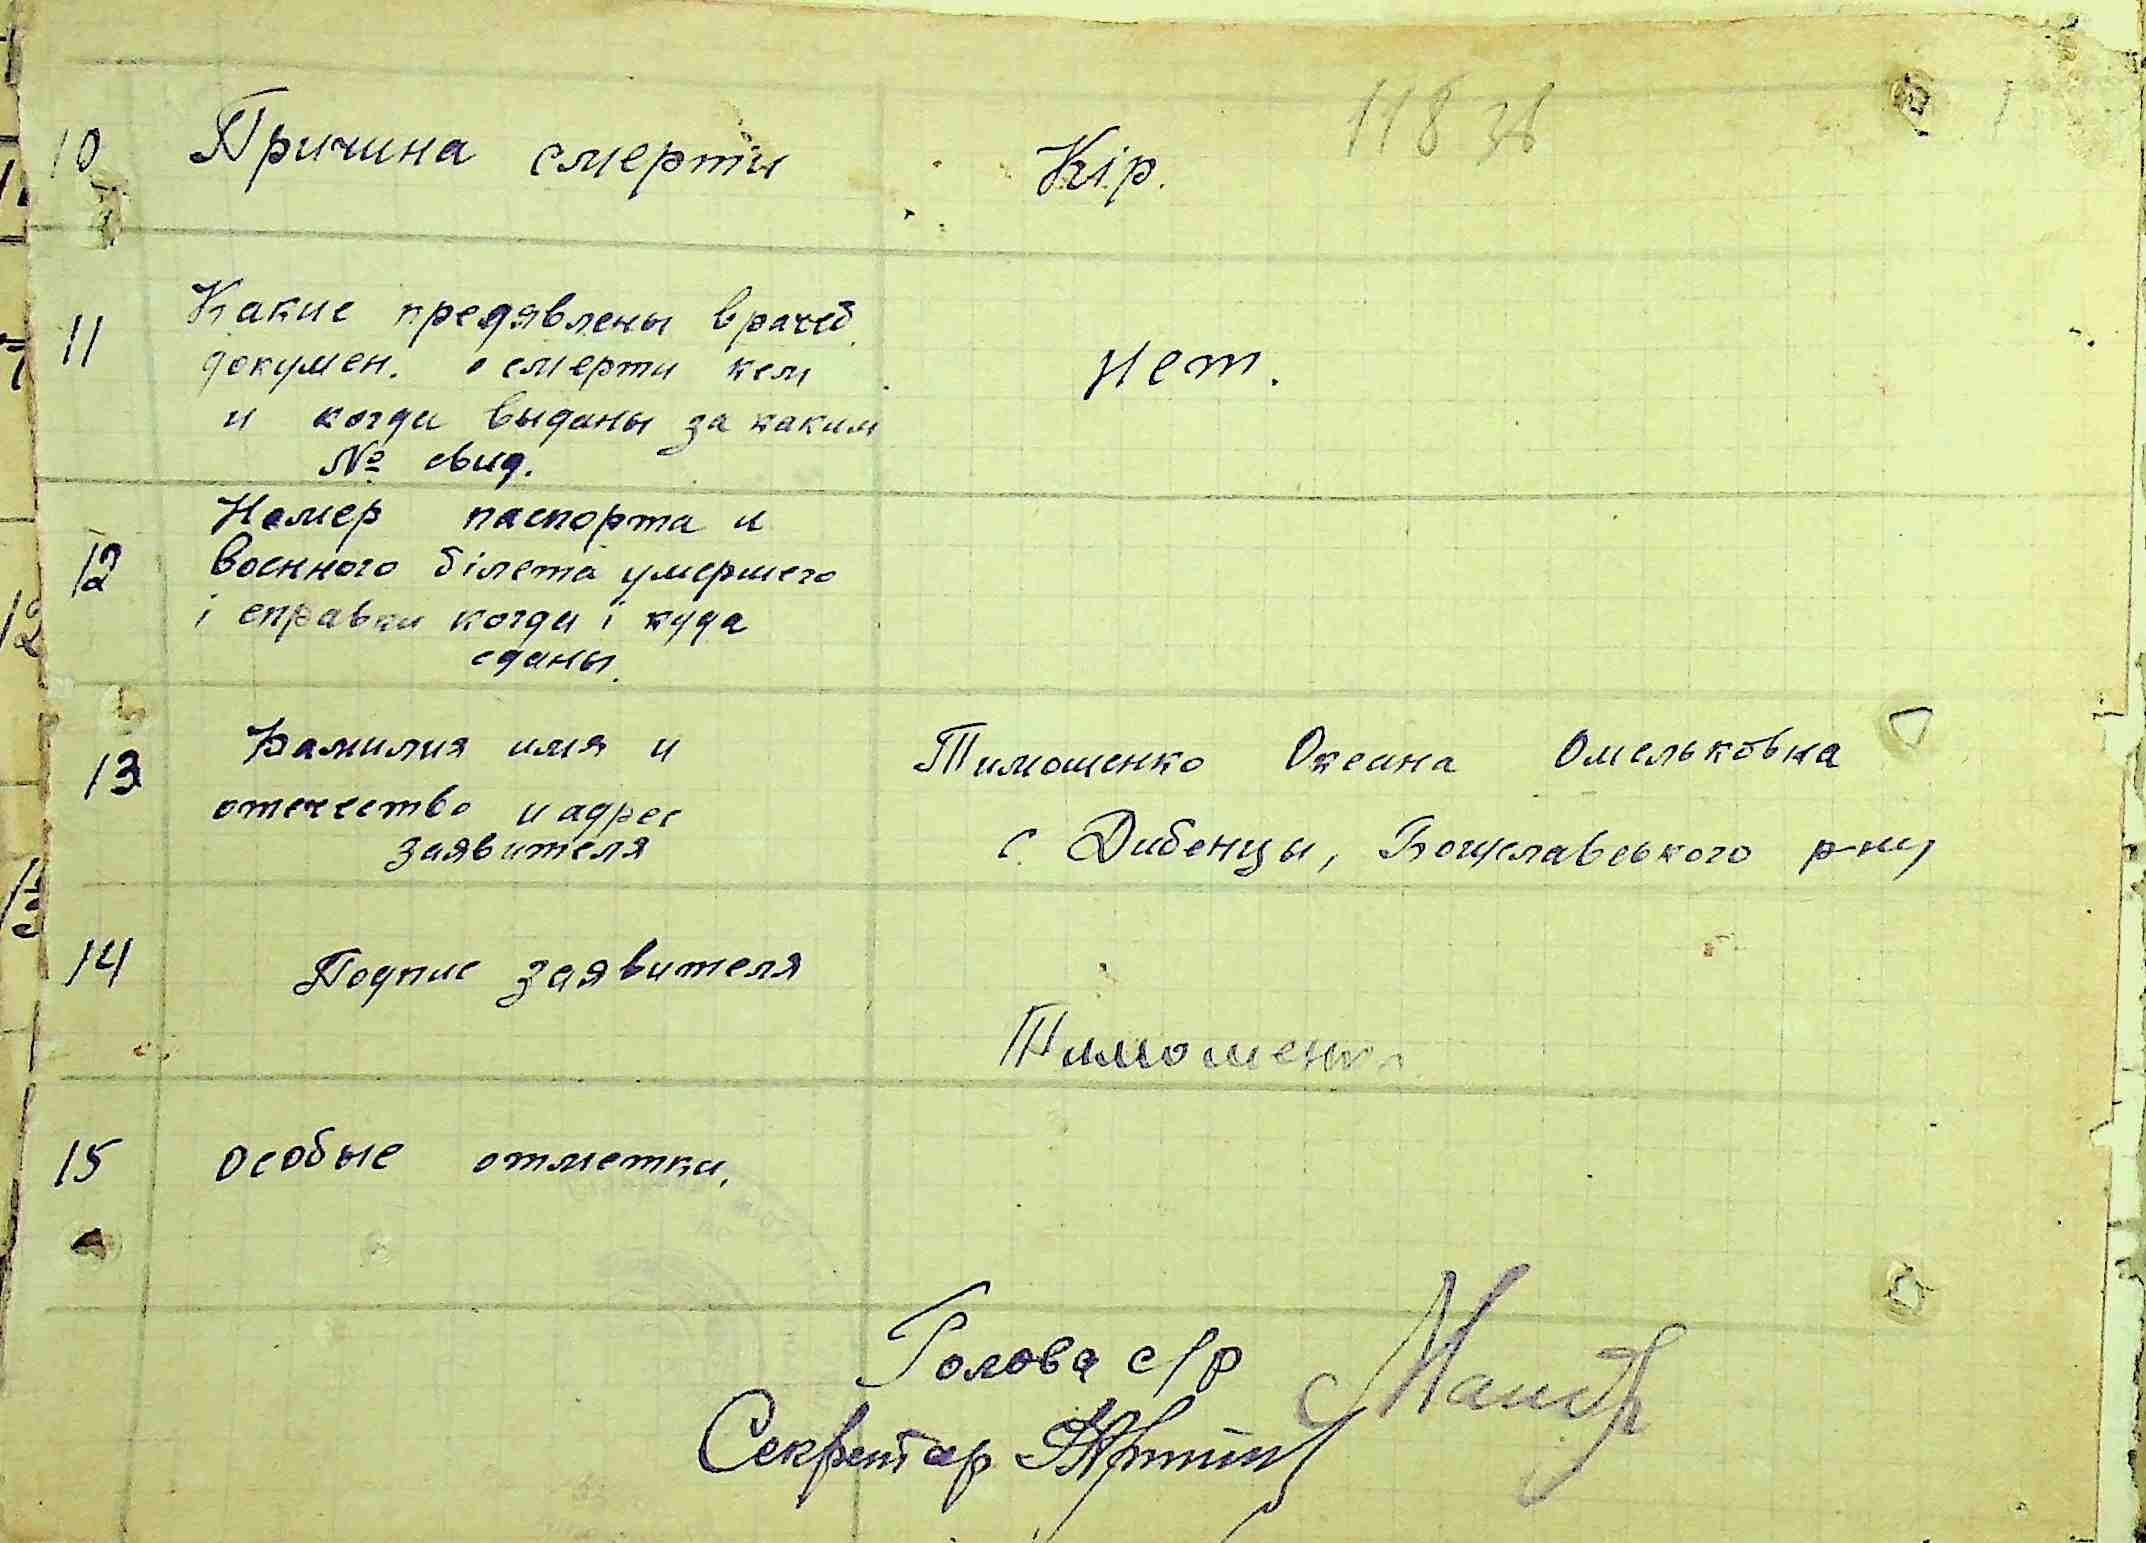 118 зв
10 Причина смерти Кір.
11 Какие предявлены врачеб.
докумен. о смерти кем
и когда выданы за каким
№ свид.
нет.
12 Номер паспорта и
военного білета умершего
і справки когда і куда
сданы.
13 Фамилия имя и
отечество и адрес
заявителя
Тимошенко Оксана Омельковна
с. Дибенцы, Богуславського р-ну
14 Подпис заявителя
Тимошенко
15 Особые отметки.
Голова с/р
Секретар